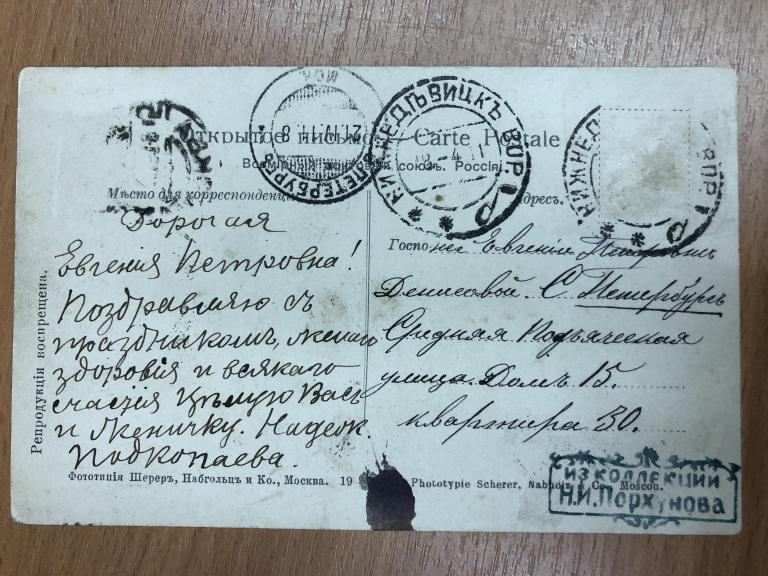 Открытое письмо. — Carte Postale
Всемірный почтовый союзъ. Россія.
Мѣсто для корреспонденціи
Адресъ.
Дорогая
Евгенія Петровна!
Поздравляю съ
праздникомъ, желаю
здоровія и всякаго
счастія Цѣлую Васъ
и Женичку. Надеж.
Подкопаева.
Госпоже Евгеніи Петровнѣ
Денисовой. С. Петербургъ
Средняя Подъяческая
улица. Домъ 15.
квартира 30.
Репродукція воспрещена.
Фототипія Шереръ, Набгольцъ и Ко., Москва. 19
Phototypie Scherer, Nabholz & Co. Moscou.
С.ПЕТЕРБУРГЪ
21 IV 11 8
НИЖНЕДѢВИЦКЪ ВОР. Г.
НИЖНЕД ВОР. Г.
ИЗ КОЛЛЕКЦИИ
Н.И.Порхунова